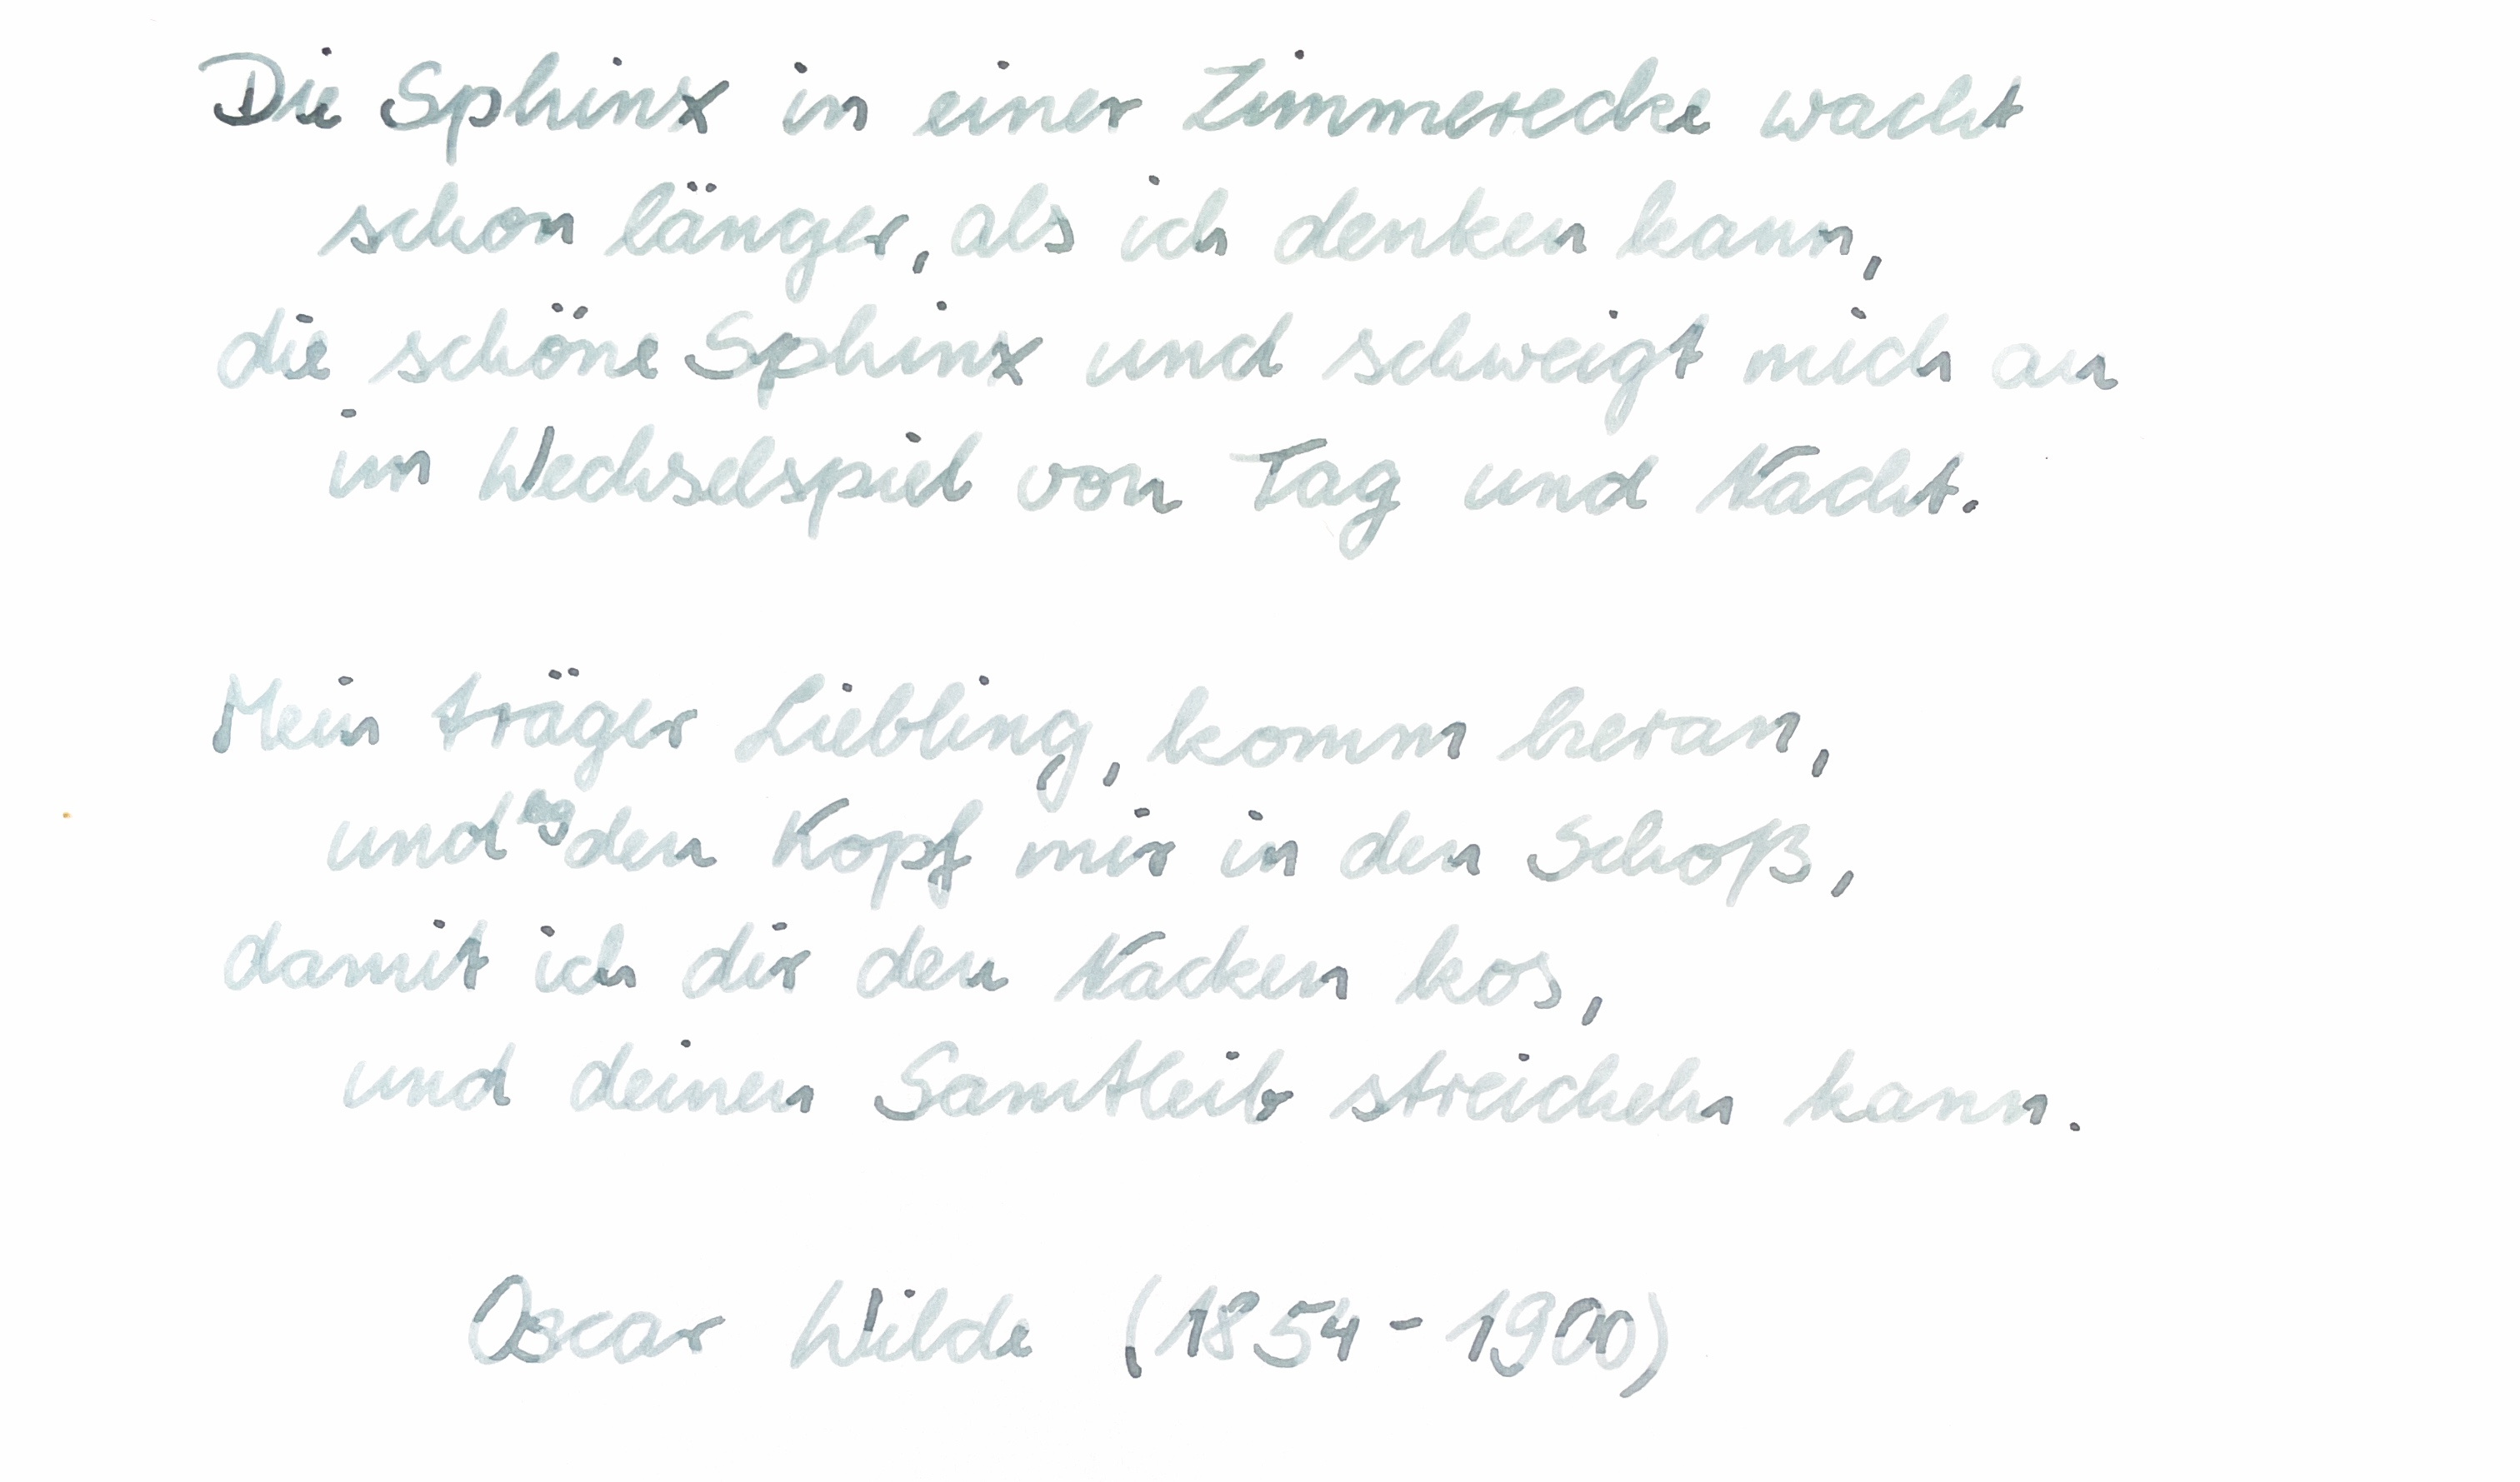 Die Sphinx in einer Zimmerecke wacht
schon länger, als ich denken kann,
die schöne Sphinx und schweigt mich an
im Wechselspiel von Tag und Nacht.
Mein träger Liebling, komm heran,
und den Kopf mir in den Schoß,
damit ich dir den Nacken kos,
und deinen Samtleib streicheln kann.
Oscar Wilde (1854-1900)